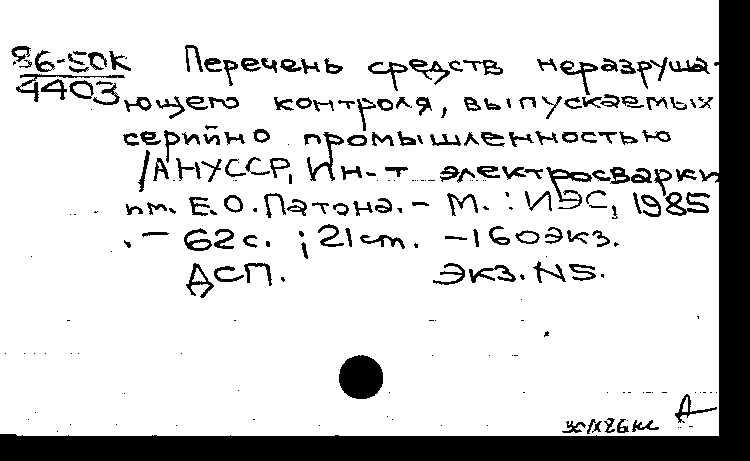 86-50К Перечень средств неразруша-
4403 ющего контроля, выпускаемых
серийно промышленностью
/АНУССР, Ин-т электросварки
им. Е.О.Патона. - М. : ИЭС, 1985
. - 62с. ; 21см. - 160экз.
ДСП. Экз.N5.
А